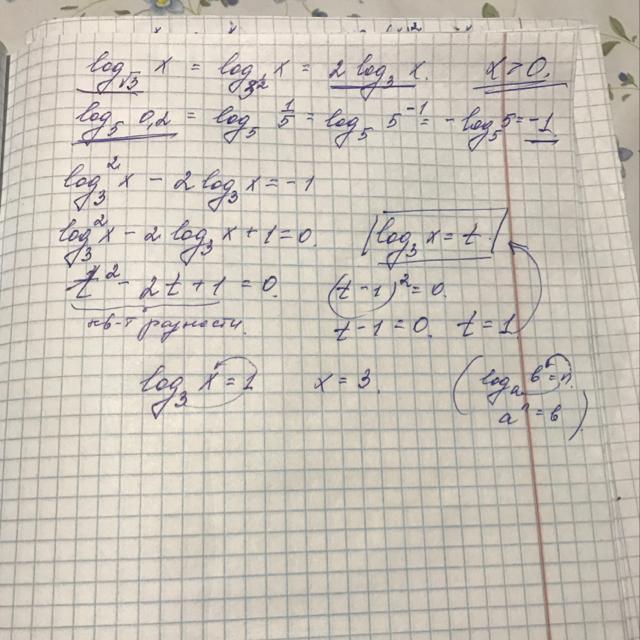 log_√3 x = log_3^½ x = 2 log_3 x. x > 0.
log_5 0,2 = log_5 1/5 = log_5 5^-1 = -log_5 5 = -1
log_3^2 x - 2 log_3 x = -1
log_3^2 x - 2 log_3 x + 1 = 0. log_3 x = t.
t^2 - 2t + 1 = 0. (t - 1)^2 = 0.
кв-т разности. t - 1 = 0. t = 1
log_3 x = 1 x = 3. (log_a b = n.
a^n = b)